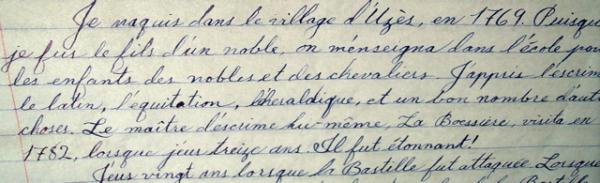 Je naquis dans le village d'Uzès, en 1769. Puisque
je fus le fils d'un noble, on m'enseigna dans l'école pour
les enfants des nobles et des chevaliers. J'appris l'escrime
le latin, l'équitation, l'héraldique, et un bon nombre d'aut
choses. Le maître d'escrime lui-même, La Boessière, visita en
1782, lorsque j'eus treize ans. Il fut étonnant!
J'eus vingt ans lorsque la Bastille fut attaquée. Lorsque